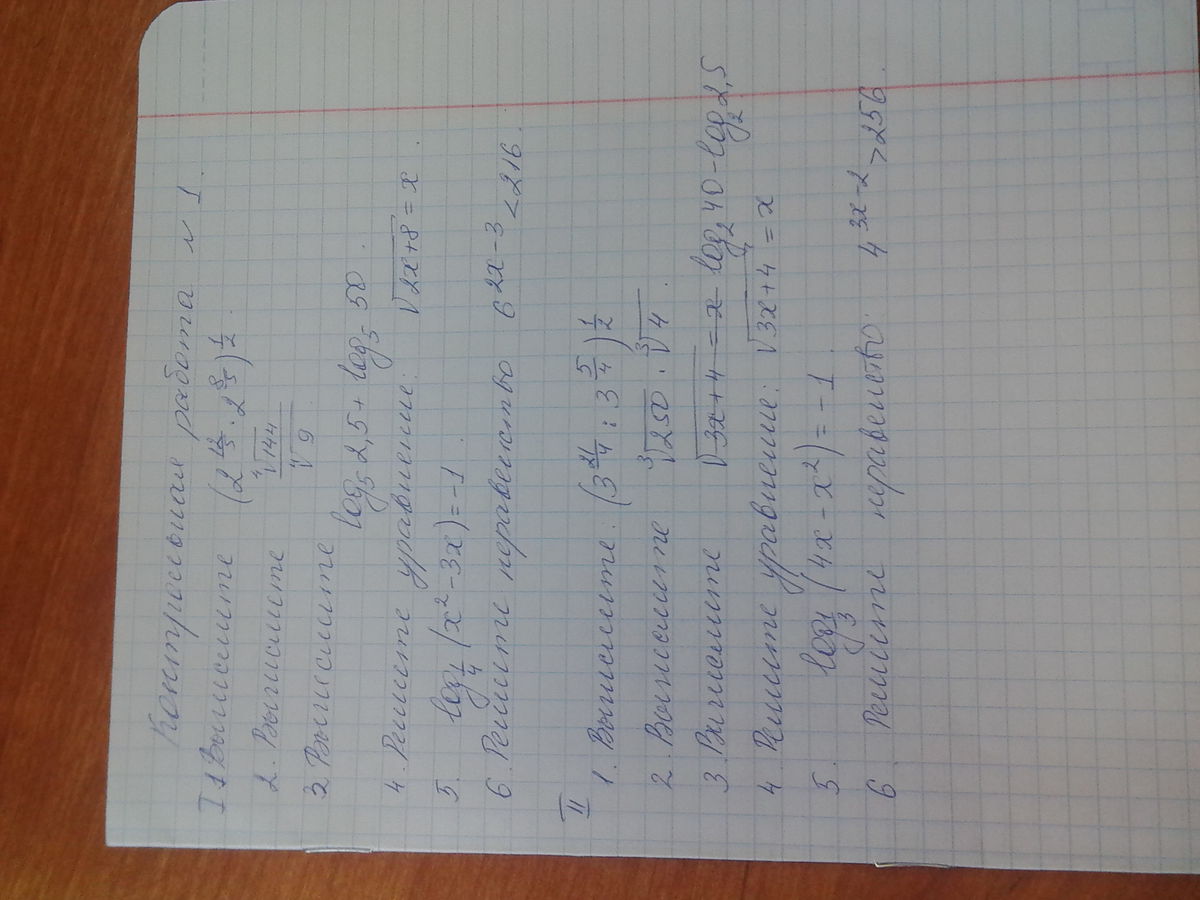 Контрольная работа № 1
I 1 Вычислите (2^{12/5} · 2^{8/5})^{1/2}.
2. Вычислите \frac{\sqrt[4]{144}}{\sqrt[4]{9}}
3 Вычислите
log₅ 2,5 + log₅ 50.
4. Решите уравнение: √(2x+8) = x.
5. log_{1/4} (x² - 3x) = -1.
6. Решите неравенство 6^{2x-3} < 216.
II
1. Вычислите: (3^{21/4} : 3^{5/4})^{1/2}
2. Вычислите ∛250 · ∛4.
3. Вычислите √(3x+4) = x log₂ 40 - log₂ 2,5
4 Решите уравнение: √(3x+4) = x
5. log_{1/3} (4x - x²) = -1.
6. Решите неравенство: 4^{3x-2} > 256.